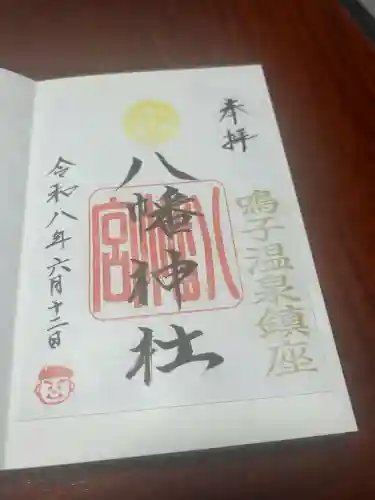 奉拝
鳴子温泉鎮座
八幡神社
八幡宮
令和八年六月十二日